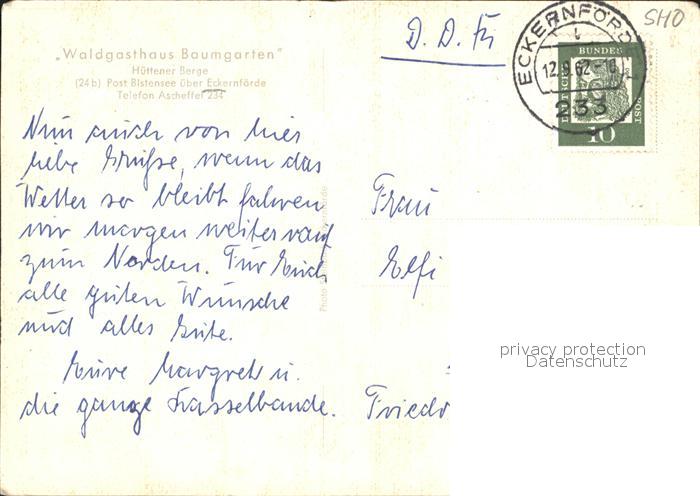 D. D. Fr
SHO
„Waldgasthaus Baumgarten"
Hüttener Berge
(24b) Post Bistensee über Eckernförde
Telefon Ascheffel 234
ECKERNFÖRDE
12.9.62-16
233
DEUTSCHE BUNDESPOST
10
Nun auch von hier
liebe Grüße, wenn das
Wetter so bleibt fahren
wir morgen weiter rauf
zum Norden. Für Euch
alle guten Wünsche
und alles Gute.
Eure Margret u.
die ganze Rasselbande.
Frau
Elfi
Friedr
privacy protection
Datenschutz